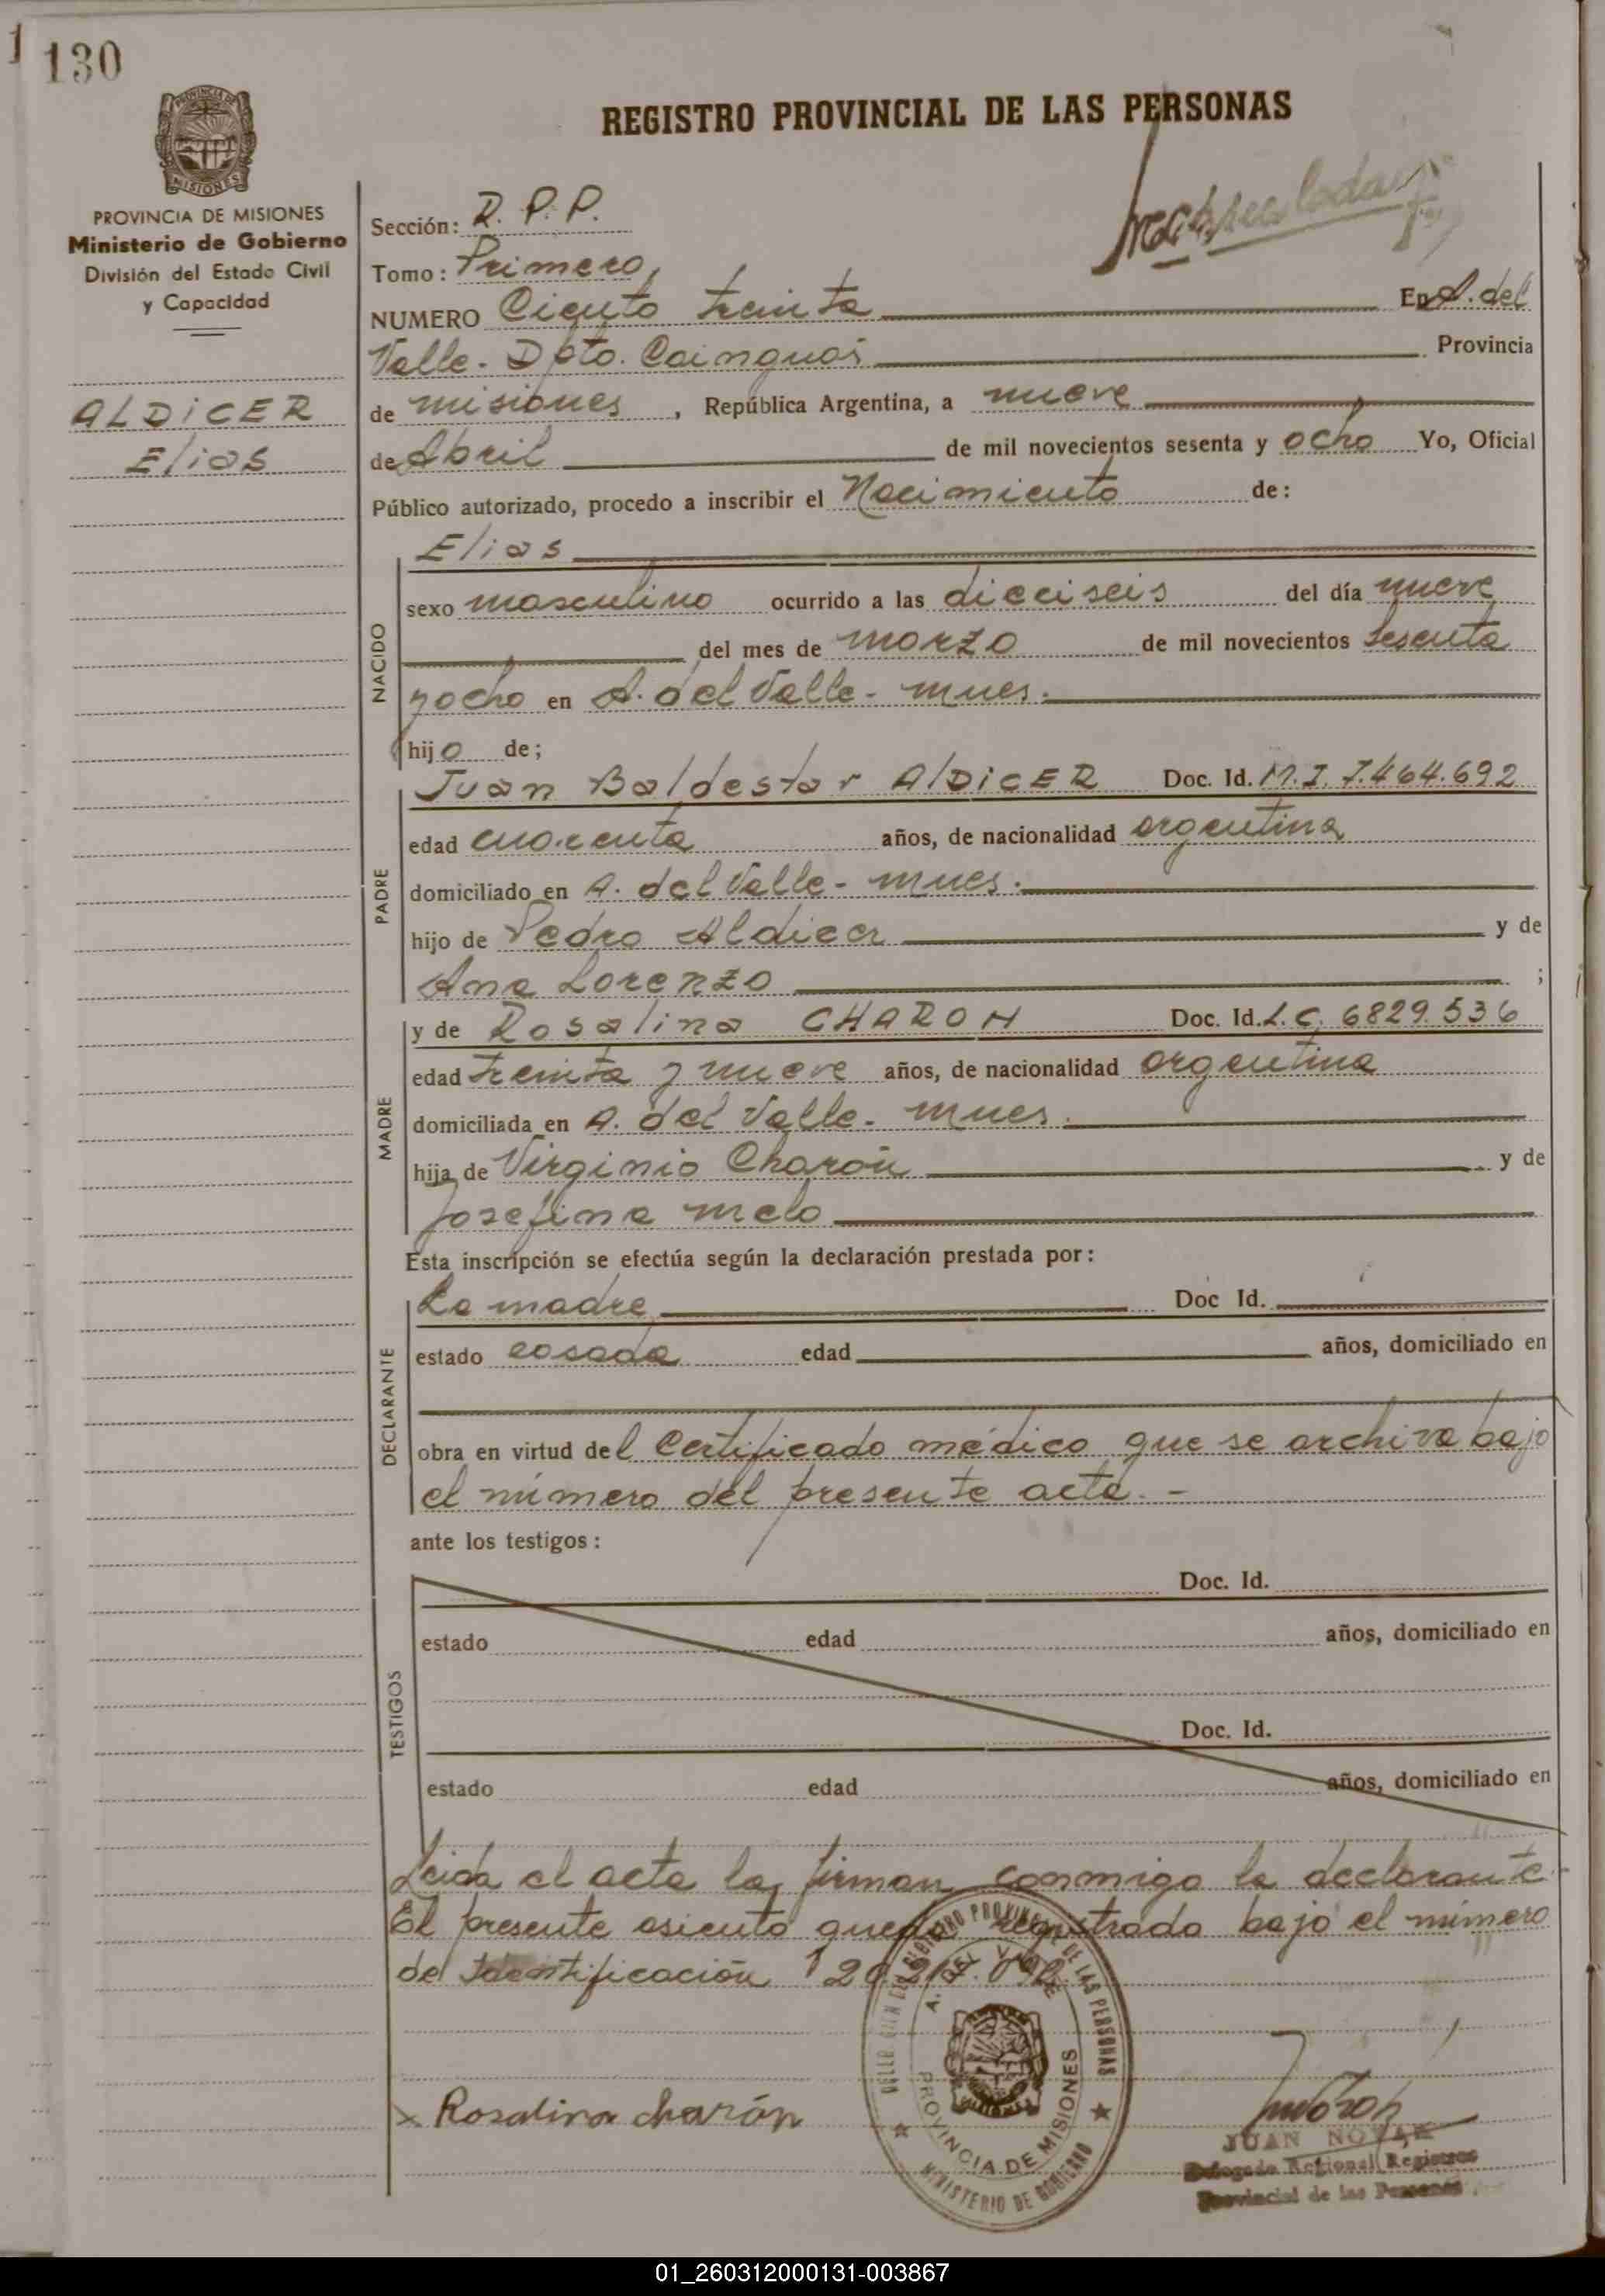 130
REGISTRO PROVINCIAL DE LAS PERSONAS
PROVINCIA DE MISIONES
Ministerio de Gobierno
División del Estado Civil
y Capacidad
ALDICER
Elias
Sección: R. P. P.
Tomo: Primero
NUMERO Ciento treinta En A. del
Valle - Dpto. Cainguas Provincia
de misiones, República Argentina, a nueve
de Abril de mil novecientos sesenta y ocho Yo, Oficial
Público autorizado, procedo a inscribir el Nacimiento de:
NACIDO
Elias
sexo masculino ocurrido a las dieciseis del día nueve
del mes de marzo de mil novecientos sesenta
y ocho en A. del Valle - mnes.
hijo de;
PADRE
Juan Baldestar AlDiCER Doc. Id. M.I. 7.464.692
edad cuarenta años, de nacionalidad argentina
domiciliado en A. del Valle - mnes.
hijo de Pedro Aldicer y de
Ana Lorenzo ;
MADRE
y de Rosalina CHARON Doc. Id. L.C. 6829.536
edad treinta y nueve años, de nacionalidad argentina
domiciliada en A. del Valle - mnes.
hija de Virginio Charón y de
Josefina melo
Esta inscripción se efectúa según la declaración prestada por:
DECLARANTE
La madre Doc Id.
estado casada edad años, domiciliado en
obra en virtud del Certificado médico que se archiva bajo
el número del presente acta. -
ante los testigos:
TESTIGOS
Doc. Id.
estado edad años, domiciliado en
Doc. Id.
estado edad años, domiciliado en
Leida el acta la firman conmigo la declarante.
El presente asiento queda registrado bajo el número
de Identificación
REGISTRO PROVINCIAL DE LAS PERSONAS
A. DEL VALLE
PROVINCIA DE MISIONES
MINISTERIO DE GOBIERNO
x Rosalina charón
JUAN NOVAK
Delegado Regional Registros
Provincial de las Personas
01_260312000131-003867